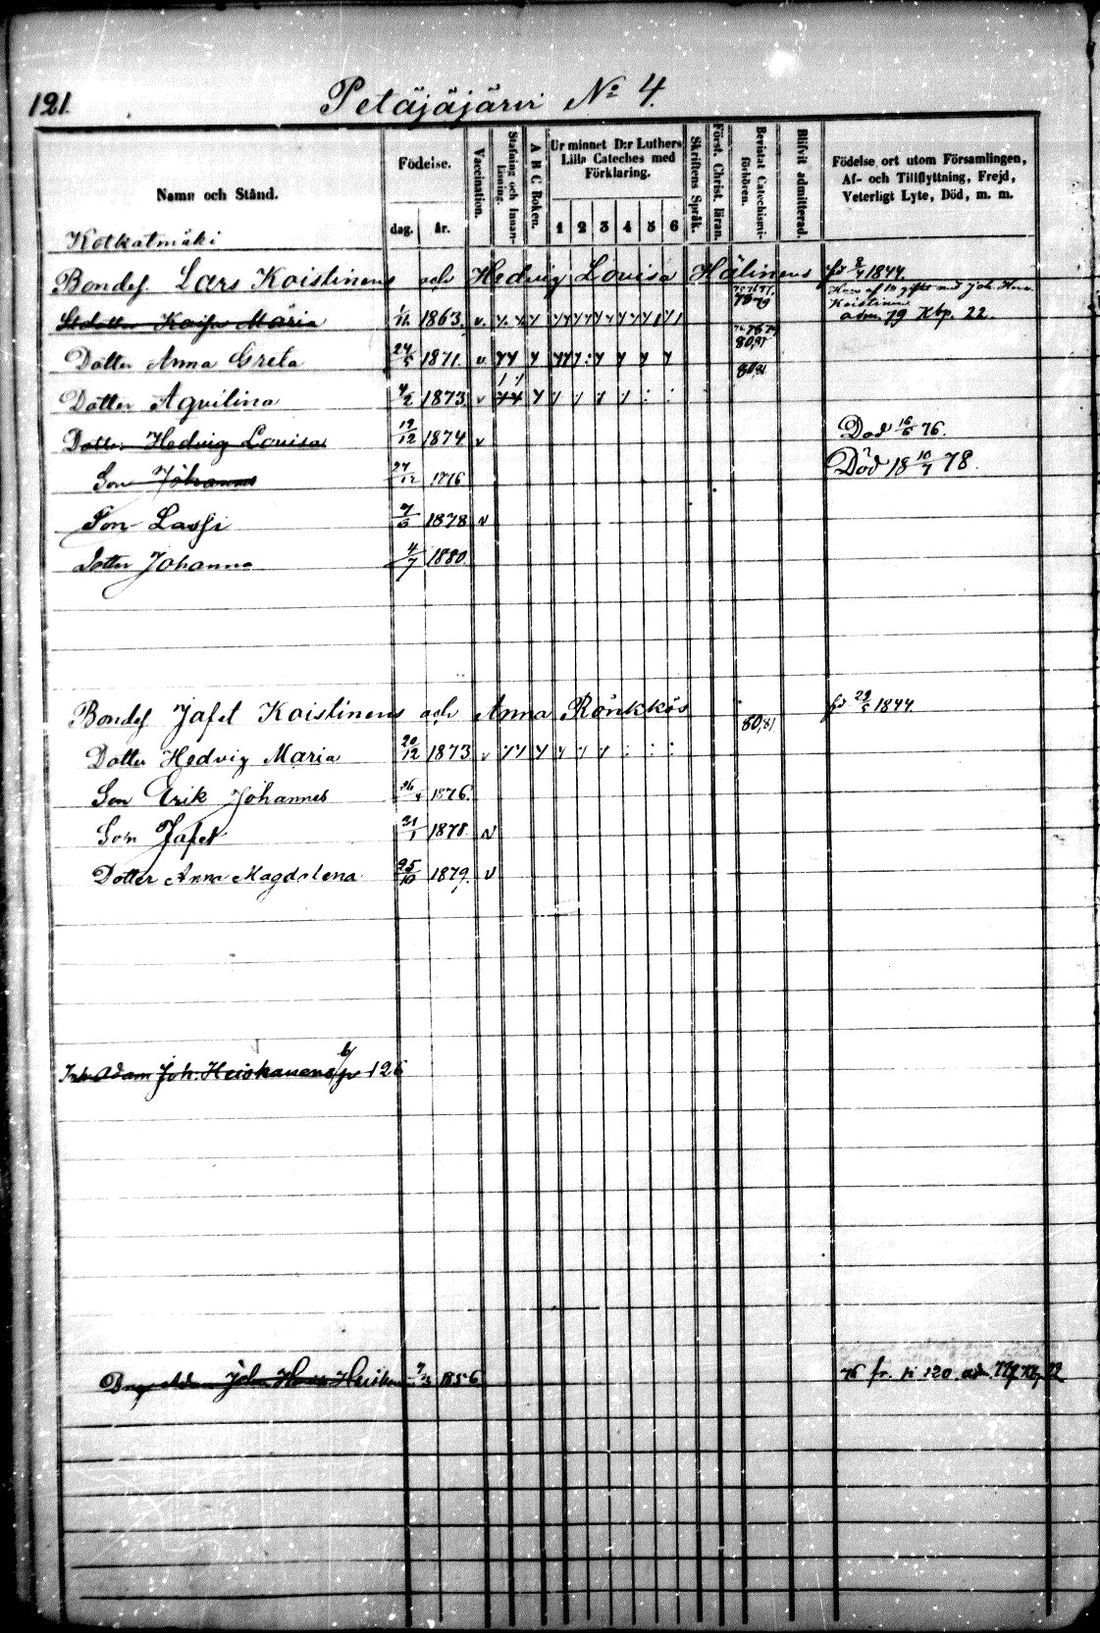 121.
Petäjäjärvi No 4.
Namn och Stånd.
Födelse.
dag.
år.
Vaccination.
Stafning och Innan-läsning.
A B C Boken.
Ur minnet D:r Luthers Lilla Cateches med Förklaring.
1 2 3 4 5 6
Skriftens Språk.
Först. Christ. läran.
Bevistat Catechismi-förhören.
Blifvit admitterad.
Födelse ort utom Församlingen, Af- och Tillflyttning, Frejd, Veterligt Lyte, Död, m. m.
Kotkatmäki
Bondes. Lars Koistinens och Hedvig Lovisa Hälinens 8/4 1844.
Maria 1863. v. 78 79 adm. 79 Kbp. 22.
Dotter Anna Greta 24/5 1871. v 80,81
Dotter Aqvilina 4/2 1873. v 80,81
Dotter Hedvig Lovisa 19/12 1874 v Död 16/6 76.
Son Johannes 27/12 Död 18 10/7 78.
Son Lassi 7/6 1878 v
Dotter Johanna 4/7 1880
Bondes Jafet Koistinens och Anna Rönkkös 29/5 1844.
Dotter Hedvig Maria 20/12 1873 v 80,81
Son Erik Johannes 1876.
Son Jafet 31/1 1878 v
Dotter Anna Magdalena 25/10 1879. v
Adam Joh. Heiskanens p 126
1856 76 fr. 120